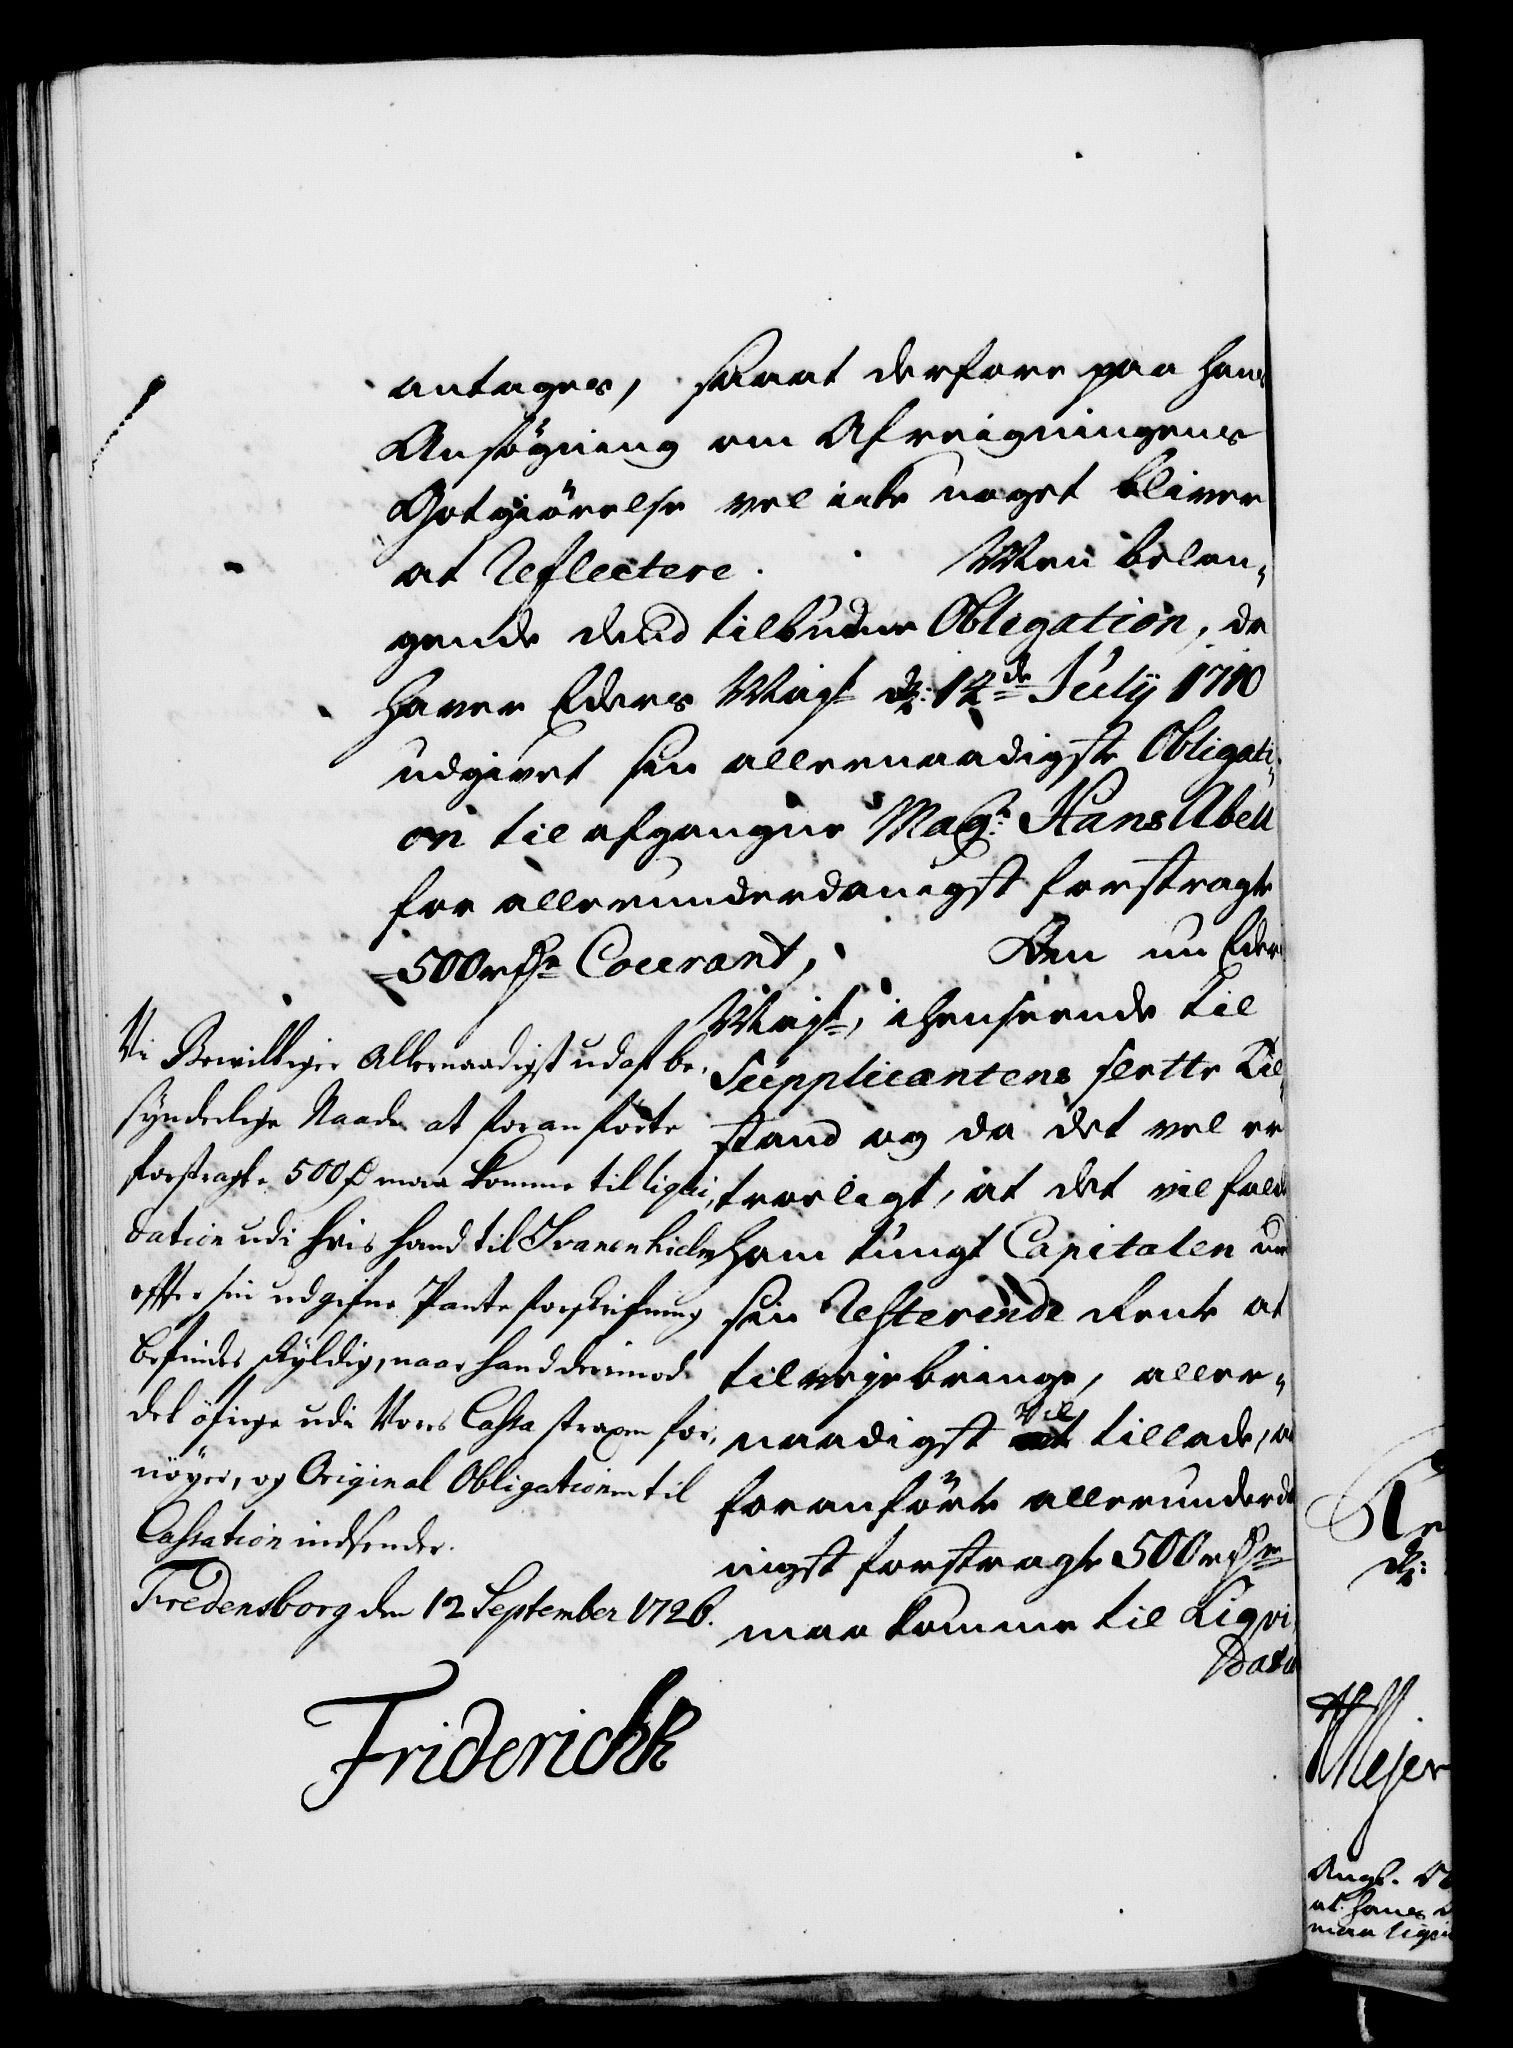 antages, saaat derfore paa hans
Ansøgning om Afreigningens
Gotgiörelse vel icke noget bliver
at Reflectere. Men belan-
gende dend tilbudne Obligation, da
haver Eders Mayst d: 12de Julij 1710
udgivet sin allernaadigste Obligati-
on til afgangne Magr: Hans Abell
for allerunderdanigst forstragte
500 rdr Courant, Om nu Eders
Mayst, i henseende til
Supplicantens slette Til-
stand og da det vel er
troeligt, at det vil falde
ham tungt Capitalen med
sin Resterende Rente at
tilvejebringe, aller-
naadigst vil tillade, at
foranførte allerunderda
nigst forstragte 500 rdr
maa komme til Liqvi-
datio
Vi Bevilliger Allernaadigst ud af be-
synderlige Naade at foranførte
forstragte 500 rdr maa komme til liqvi-
dation udi hvis hand til Svanenhielm
effter sin udgifne Pante forskrifning
befindes skyldig, naar hand derimod
det öfrige udi Vores Cassa straxen for-
nöyer, og Original Obligationen til
Cassation indsender.
Fredensborg den 12 September 1726.
Friderich R
Mejer